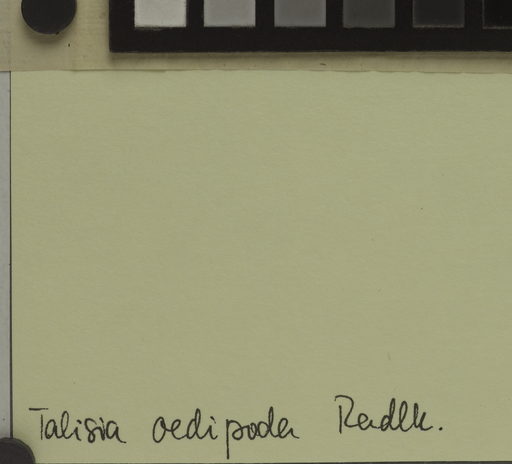 Talisia oedipoda Radlk.